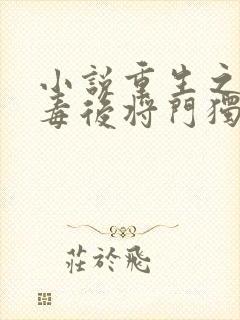 小説重生之
毒後將門獨
莊於飛